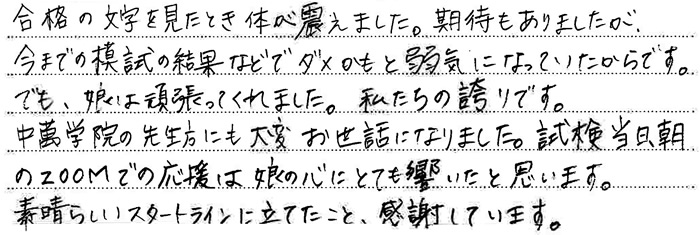 合格の文字を見たとき体が震えました。期待もありましたが、
今までの模試の結果などでダメかもと弱気になっていたからです。
でも、娘は頑張ってくれました。私たちの誇りです。
中萬学院の先生方にも大変お世話になりました。試検当日、朝
のZOOMでの応援は娘の心にとても響いたと思います。
素晴らしいスタートラインに立てたこと、感謝しています。